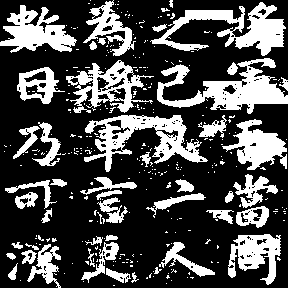 將軍吾當問
之已又二人
為將軍言更
數日乃可濟